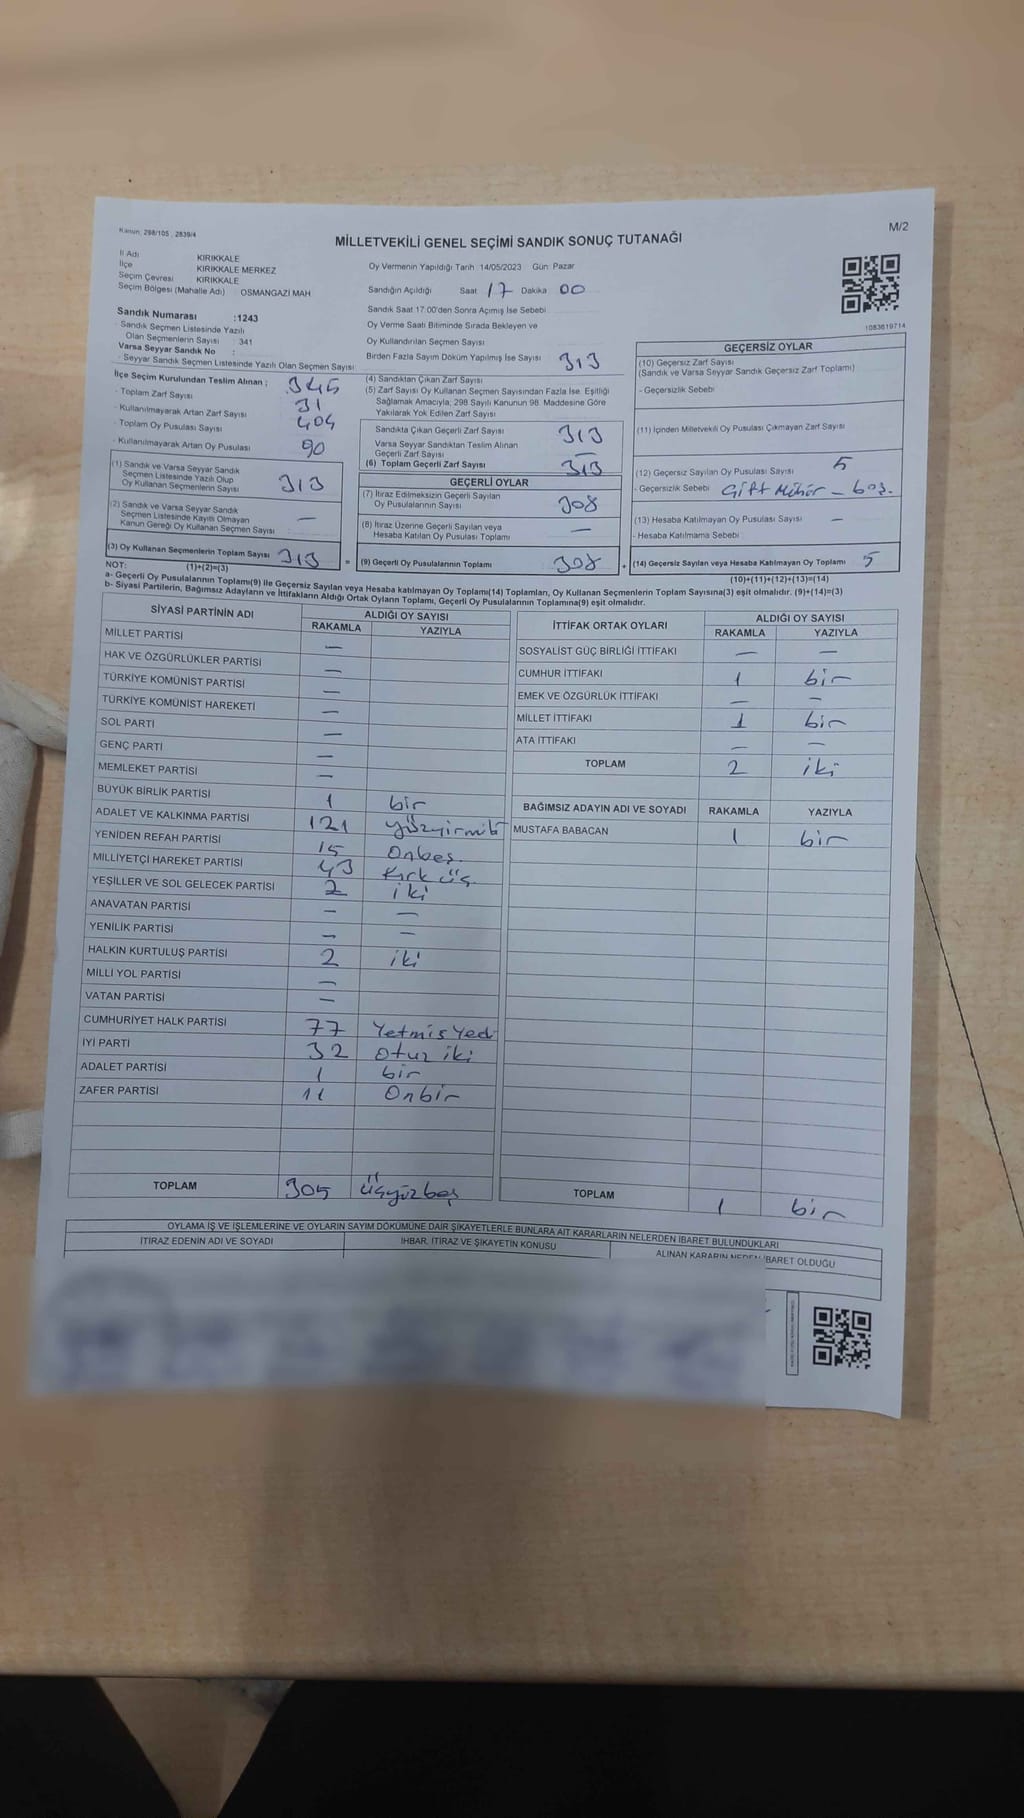 Kanun: 298/105, 2839/4
M/2
MİLLETVEKİLİ GENEL SEÇİMİ SANDIK SONUÇ TUTANAĞI
İl Adı KIRIKKALE
İlçe KIRIKKALE MERKEZ
Seçim Çevresi KIRIKKALE
Seçim Bölgesi (Mahalle Adı) : OSMANGAZİ MAH
Oy Vermenin Yapıldığı Tarih 14/05/2023 Gün: Pazar
Sandığın Açıldığı Saat 17 Dakika 00
Sandık Saat 17:00'den Sonra Açımış İse Sebebi
Oy Verme Saati Bitiminde Sırada Bekleyen ve
Oy Kullandırılan Seçmen Sayısı
Birden Fazla Sayım Döküm Yapılmış İse Sayısı
1083619714
Sandık Numarası :1243
- Sandık Seçmen Listesinde Yazılı
Olan Seçmenlerin Sayısı : 341
Varsa Seyyar Sandık No :
- Seyyar Sandık Seçmen Listesinde Yazılı Olan Seçmen Sayısı:
İlçe Seçim Kurulundan Teslim Alınan ;
- Toplam Zarf Sayısı 345
- Kullanılmayarak Artan Zarf Sayısı 31
- Toplam Oy Pusulası Sayısı 404
- Kullanılmayarak Artan Oy Pusulası 90
(1) Sandık ve Varsa Seyyar Sandık
Seçmen Listesinde Yazılı Olup
Oy Kullanan Seçmenlerin Sayısı 313
(2) Sandık ve Varsa Seyyar Sandık
Seçmen Listesinde Kayıtlı Olmayan
Kanun Gereği Oy Kullanan Seçmen Sayısı —
(3) Oy Kullanan Seçmenlerin Toplam Sayısı 313
(1)+(2)=(3)
(4) Sandıktan Çıkan Zarf Sayısı 313
(5) Zarf Sayısı Oy Kullanan Seçmen Sayısından Fazla İse, Eşitliği
Sağlamak Amacıyla; 298 Sayılı Kanunun 98. Maddesine Göre
Yakılarak Yok Edilen Zarf Sayısı
Sandıkta Çıkan Geçerli Zarf Sayısı 313
Varsa Seyyar Sandıktan Teslim Alınan
Geçerli Zarf Sayısı —
(6) Toplam Geçerli Zarf Sayısı 313
GEÇERLİ OYLAR
(7) İtiraz Edilmeksizin Geçerli Sayılan
Oy Pusulalarının Sayısı 308
(8) İtiraz Üzerine Geçerli Sayılan veya
Hesaba Katılan Oy Pusulası Toplamı —
= (9) Geçerli Oy Pusulalarının Toplamı 308
GEÇERSİZ OYLAR
(10) Geçersiz Zarf Sayısı
(Sandık ve Varsa Seyyar Sandık Geçersiz Zarf Toplamı)
- Geçersizlik Sebebi
(11) İçinden Milletvekili Oy Pusulası Çıkmayan Zarf Sayısı
(12) Geçersiz Sayılan Oy Pusulası Sayısı 5
- Geçersizlik Sebebi Çift Mühür - boş.
(13) Hesaba Katılmayan Oy Pusulası Sayısı —
- Hesaba Katılmama Sebebi
+ (14) Geçersiz Sayılan veya Hesaba Katılmayan Oy Toplamı 5
(10)+(11)+(12)+(13)=(14)
NOT:
a- Geçerli Oy Pusulalarının Toplamı(9) ile Geçersiz Sayılan veya Hesaba katılmayan Oy Toplamı(14) Toplamları, Oy Kullanan Seçmenlerin Toplam Sayısına(3) eşit olmalıdır. (9)+(14)=(3)
b- Siyasi Partilerin, Bağımsız Adayların ve İttifakların Aldığı Ortak Oyların Toplamı, Geçerli Oy Pusulalarının Toplamına(9) eşit olmalıdır.
SİYASİ PARTİNİN ADI ALDIĞI OY SAYISI
RAKAMLA YAZIYLA
MİLLET PARTİSİ —
HAK VE ÖZGÜRLÜKLER PARTİSİ —
TÜRKİYE KOMÜNİST PARTİSİ —
TÜRKİYE KOMÜNİST HAREKETİ —
SOL PARTİ —
GENÇ PARTİ —
MEMLEKET PARTİSİ —
BÜYÜK BİRLİK PARTİSİ 1 bir
ADALET VE KALKINMA PARTİSİ 121 yüzyirmibir
YENİDEN REFAH PARTİSİ 15 Onbeş
MİLLİYETÇİ HAREKET PARTİSİ 43 Kırk üç
YEŞİLLER VE SOL GELECEK PARTİSİ 2 iki
ANAVATAN PARTİSİ — —
YENİLİK PARTİSİ — —
HALKIN KURTULUŞ PARTİSİ 2 iki
MİLLİ YOL PARTİSİ —
VATAN PARTİSİ —
CUMHURİYET HALK PARTİSİ 77 Yetmiş Yedi
İYİ PARTİ 32 Otuz iki
ADALET PARTİSİ 1 bir
ZAFER PARTİSİ 11 Onbir
TOPLAM 305 üçyüzbeş
İTTİFAK ORTAK OYLARI ALDIĞI OY SAYISI
RAKAMLA YAZIYLA
SOSYALİST GÜÇ BİRLİĞİ İTTİFAKI — —
CUMHUR İTTİFAKI 1 bir
EMEK VE ÖZGÜRLÜK İTTİFAKI — —
MİLLET İTTİFAKI 1 bir
ATA İTTİFAKI — —
TOPLAM 2 iki
BAĞIMSIZ ADAYIN ADI VE SOYADI RAKAMLA YAZIYLA
MUSTAFA BABACAN 1 bir
TOPLAM 1 bir
OYLAMA İŞ VE İŞLEMLERİNE VE OYLARIN SAYIM DÖKÜMÜNE DAİR ŞİKAYETLERLE BUNLARA AİT KARARLARIN NELERDEN İBARET BULUNDUKLARI
İTİRAZ EDENİN ADI VE SOYADI İHBAR, İTİRAZ VE ŞİKAYETİN KONUSU ALINAN KARARIN NEDEN İBARET OLDUĞU